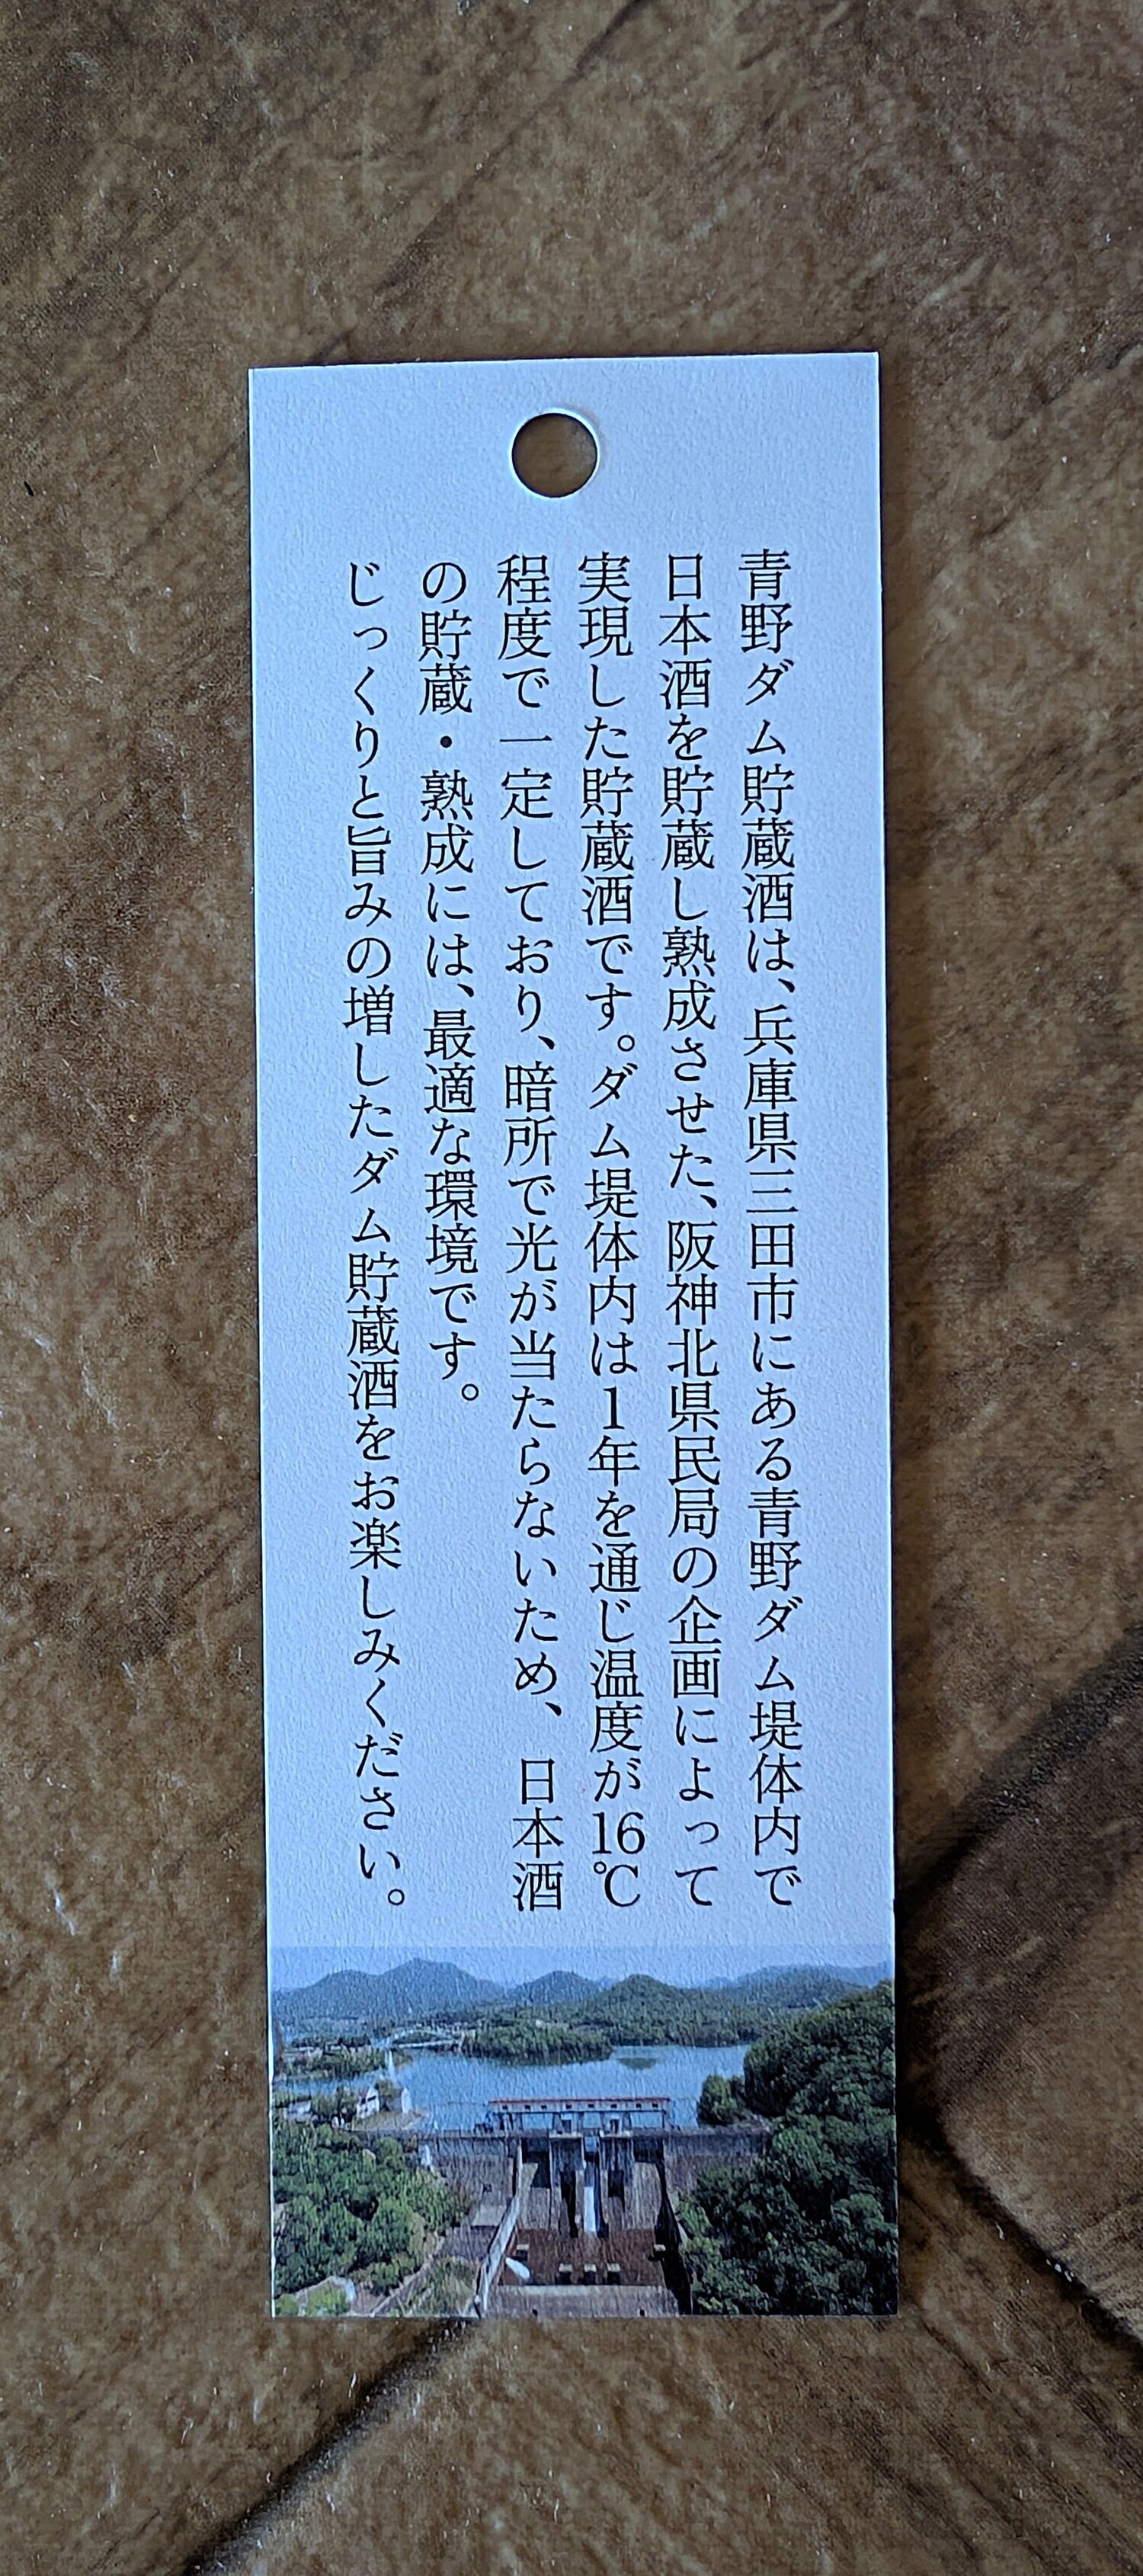 青野ダム貯蔵酒は、兵庫県三田市にある青野ダム堤体内で
日本酒を貯蔵し熟成させた、阪神北県民局の企画によって
実現した貯蔵酒です。ダム堤体内は1年を通じ温度が16℃
程度で一定しており、暗所で光が当たらないため、日本酒
の貯蔵・熟成には、最適な環境です。
じっくりと旨みの増したダム貯蔵酒をお楽しみください。